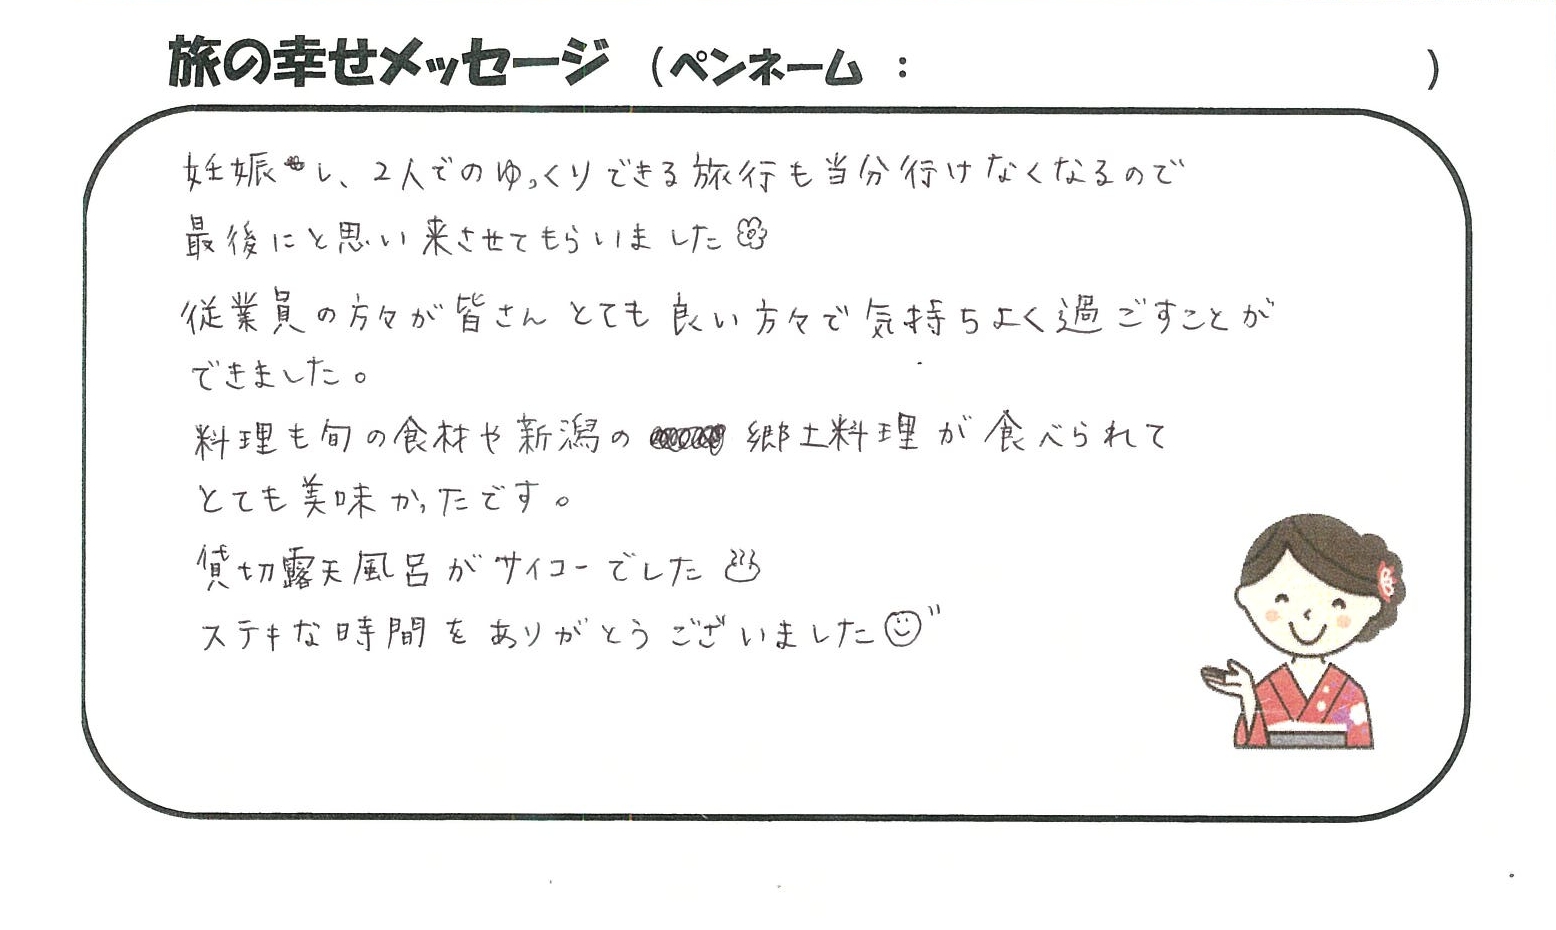 旅の幸せメッセージ (ペンネーム : )
妊娠し、2人でのゆっくりできる旅行も当分行けなくなるので
最後にと思い来させてもらいました
従業員の方々が皆さんとても良い方々で気持ちよく過ごすことが
できました。
料理も旬の食材や新潟の郷土料理が食べられて
とても美味かったです。
貸切露天風呂がサイコーでした♨
ステキな時間をありがとうございました☺"